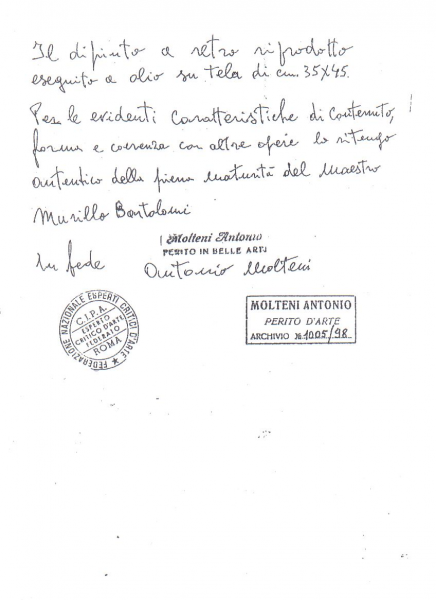 Il dipinto a retro riprodotto
eseguito a olio su tela di cm. 35X45.
Per le evidenti caratteristiche di contenuto,
forma e coerenza con altre opere lo ritengo
autentico della piena maturità del Maestro
Murillo Bartolomi
Molteni Antonio
PERITO IN BELLE ARTI
In fede Antonio Molteni
FEDERAZIONE NAZIONALE ESPERTI CRITICI D'ARTE
C.I.P.A.
ESPERTO
CRITICO D'ARTE
FEDERATO
ROMA
MOLTENI ANTONIO
PERITO D'ARTE
ARCHIVIO № 1005/98.